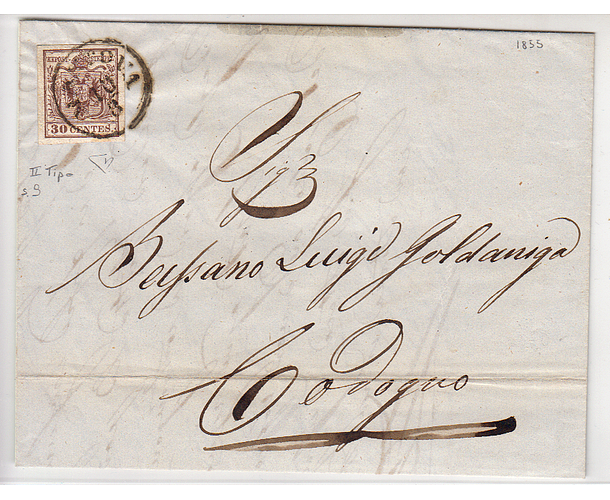 1855
30 CENTES.
II Tipo
s. 9
Sigr
Bassano Luigi Goldaniga
Codogno